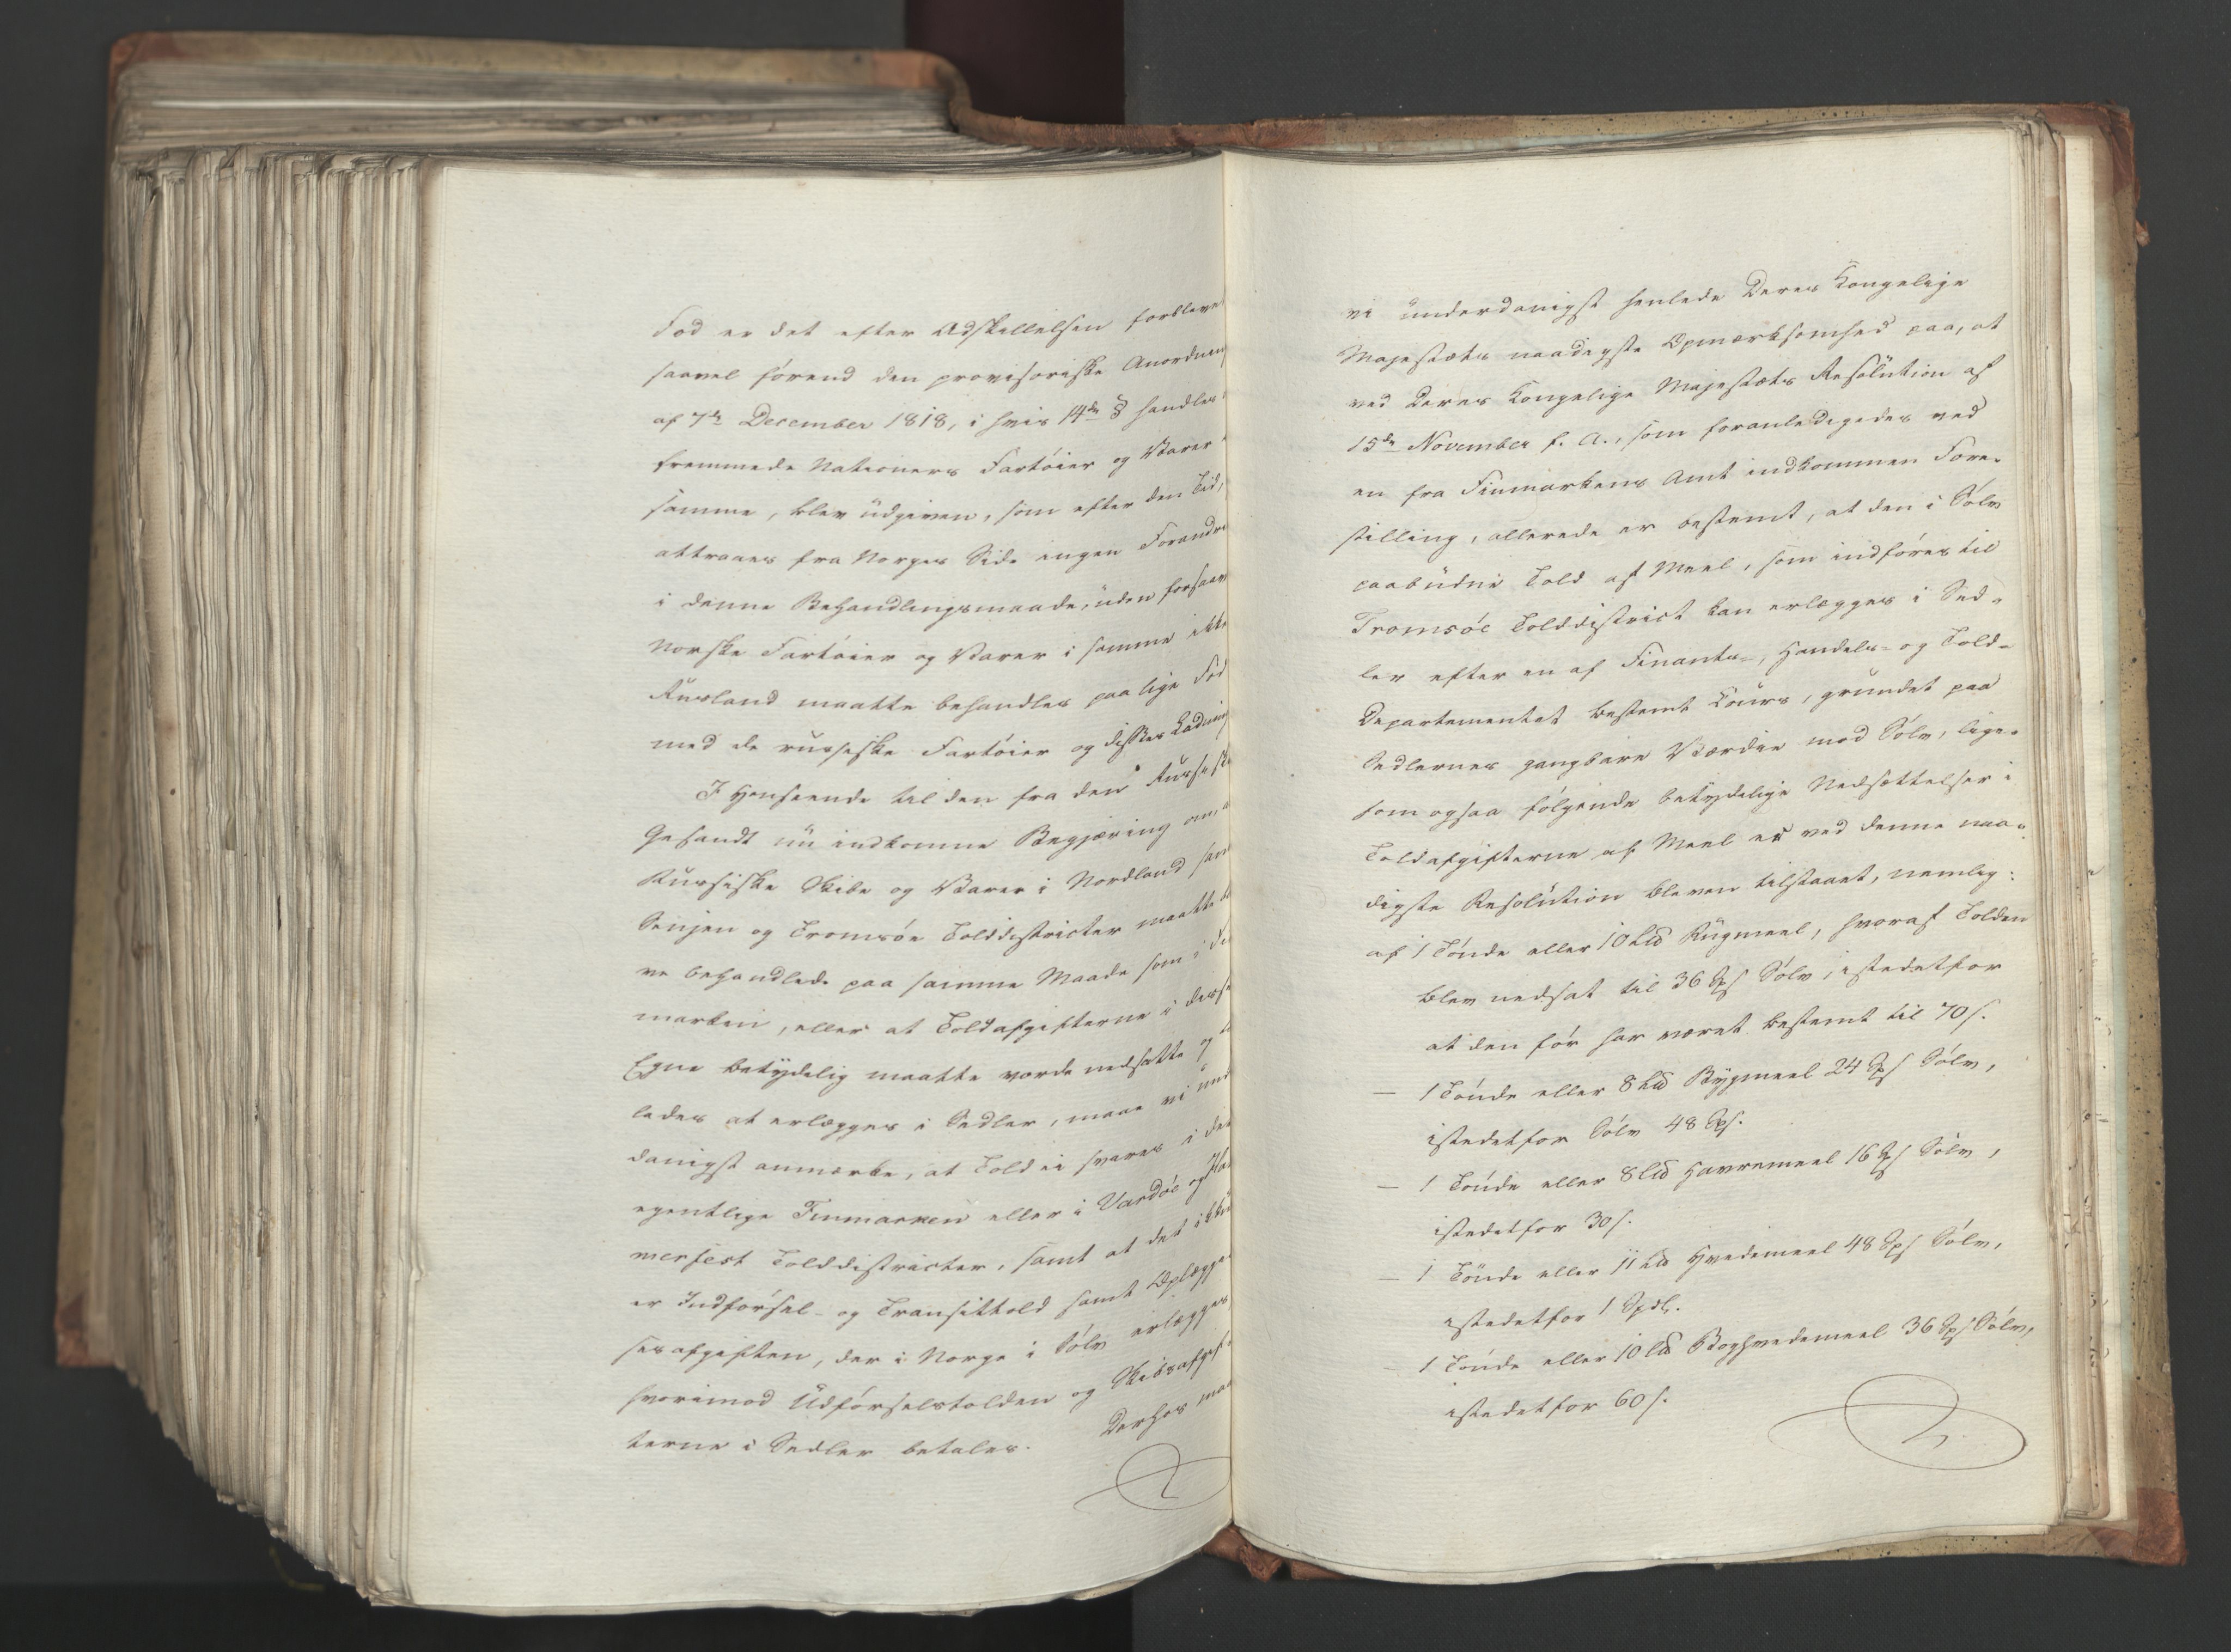 Fod er det efter Adskillelsen forbleve
saavel förend den provisoriske Anordnin
af 7de December 1818, i hvis 14de § handles
fremmede Nationers Fartöier og Varer
samme, blev udgiven, som efter den Tid,
attraaes fra Norges Side ingen Forandri
i denne Behandlingsmaade, uden forsaav
Norske Fartöier og Varer i samme ikke
Rusland maatte behandles paa lige Fod
med de russiske Fartöier og disses Ladning
I Henseende til den fra den Russiske
Gesandt nu indkomne Begjæring om, a
Russiske Skibe og Varer i Nordland sam
Senjen og Tromsöe Tolddistricter maatte bl
ve behandlede paa samme Maade som i Fi
marken, eller at Toldafgifterne i disse
Egne betydelig maatte vorde nedsatte og
lades at erlægges i Sedler, maae vi und
danigst anmærke, at Told ei svares i det
egentlige Finmarken eller i Vardöe og Ham
merfest Tolddistricter, samt at det ikkun
er Indförsel- og Transittold samt Oplægge
sesafgiften, der i Norge i Sölv erlægges,
hvorimod Udförselstolden og Skibsafgif-
terne i Sedler betales. Derhos maa
vi underdanigst henlede Deres Kongelige
Majestæts naadigste Opmærksomhed paa, at
ved Deres Kongelige Majestæts Resolution af
15de November f. A., som foranledigedes ved
en fra Finmarkens Amt indkommen Fore-
stilling, allerede er bestemt, at den i Sölv
paabudne Told af Meel, som indföres til
Tromsöe Tolddistrict kan erlægges i Sed-
ler efter en af Finants-, Handels- og Told-
Departementet bestemt Cours, grundet paa
Sedlernes gangbare Værdie mod Sölv, lige-
som ogsaa fölgende betydelige Nedsættelser i
Toldafgifterne af Meel er ved denne naa-
digste Resolution bleven tilstaaet, nemlig:
af 1 Tönde eller 10 L℔ Rugmeel, hvoraf Tolden
blev nedsat til 36 Sp s Sölv, istedetfor
at den för har været bestemt til 70 s.
— 1 Tönde eller 8 L℔ Bygmeel 24 Sp s Sölv,
istedetfor Sölv 48 Sp s.
— 1 Tönde eller 8 L℔ Havremeel 16 Sp s Sölv,
istedetfor 30 s.
— 1 Tönde eller 11 L℔ Hvedemeel 48 Sp s Sölv,
istedetfor 1 Spdl.
— 1 Tönde eller 10 L℔ Boghvedemeel 36 Sp s Sölv,
istedetfor 60 s.